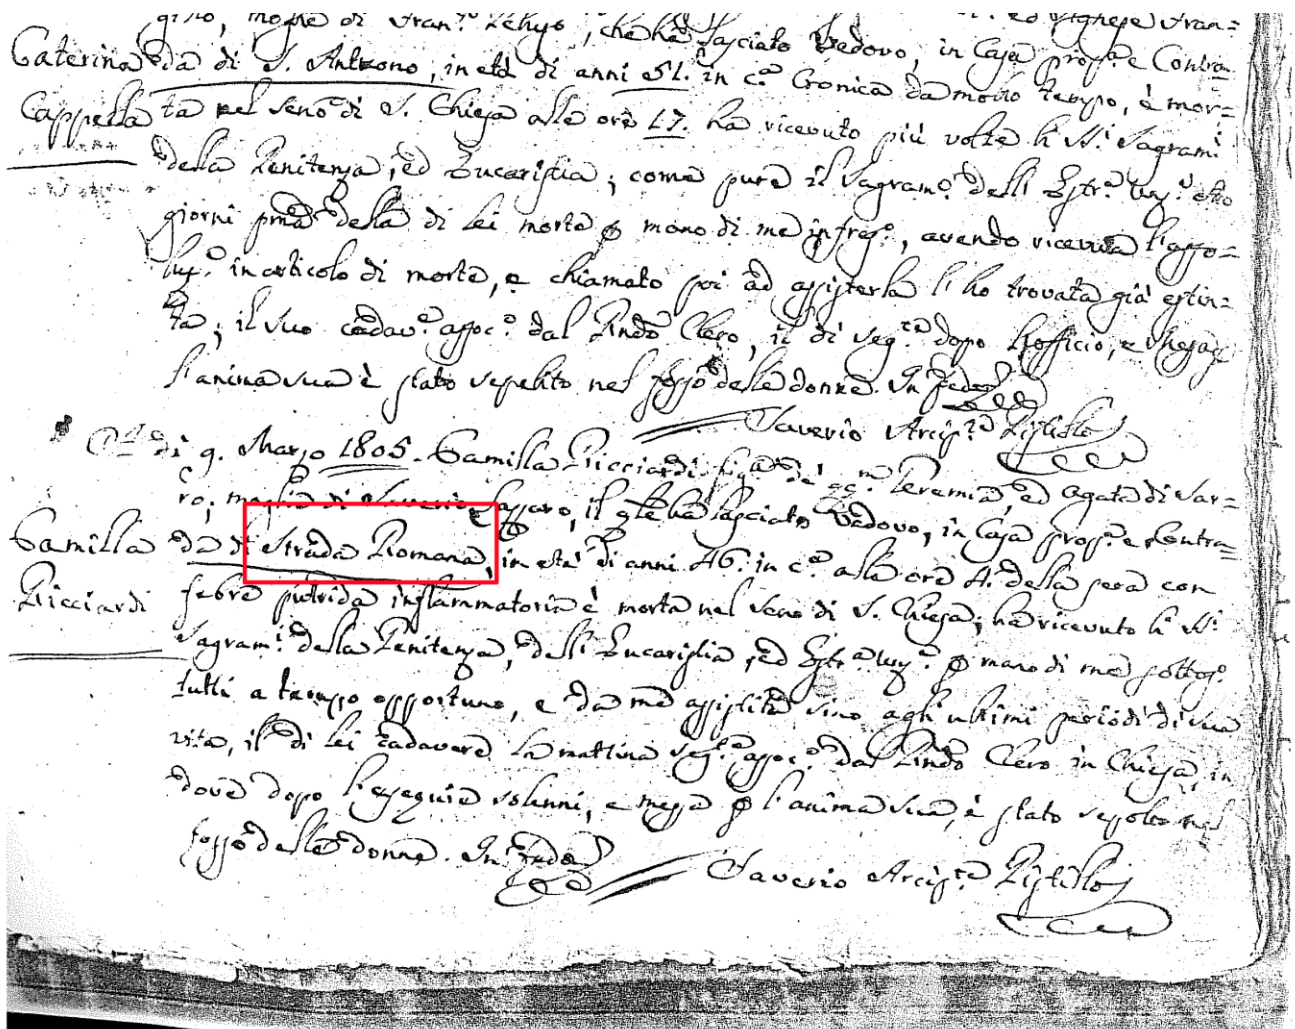 moglie di Fran.co, che ha lasciato Vedovo, in Casa prop.a e Contra=
Caterina
da di S. Antuono, in età di anni 51. in c.a Cronica da molto tempo, è mor=
Cappella
ta nel seno di S. Chiesa alle ore 17. ha ricevuto più volte li SS.i Sagram.i
della Penitenza, ed Eucaristia; come pure il Sagram.o delli Estr.a Unz.e otto
giorni pma della di lei morte p mano di me infras.o, avendo ricevuta l'asso=
luz.e in articolo di morte, e chiamato poi ad assisterla l'ho trovata già estin=
ta; il suo cadav.e assoc.o dal Rndo Clero, il dì seg.te dopo l'officio, e messa p
l'anima sua è stato sepelito nel fosso delle donne. In fede
Saverio Arcip.te Pistilli
A dì 9. Marzo 1805. Camilla Ricciardi fig.a de' qq.m Geremia, ed Agata di Sar=
ro; moglie di Saverio Sassaro, il qle ha lasciato Vedovo, in Casa prop.a e Contra=
Camilla
da di Strada Romana, in età di anni 46. in c.a alle ore 4. della sera con
Ricciardi
febre putrida inflammatoria è morta nel seno di S. Chiesa; ha ricevuto li SS.i
Sagram.i della Penitenza, dell'Eucaristia, ed Estr.a Unz.e p mano di me sottos.o
tutti a tempo opportuno, e da me assistita sino agli ultimi periodi di sua
vita, il di lei cadavere la mattina seg.te assoc.o dal Rndo Clero in Chiesa, in
dove dopo l'esequie solenni, e messa p l'anima sua, è stato sepolto nel
fosso delle donne. In fede
Saverio Arcip.te Pistilli